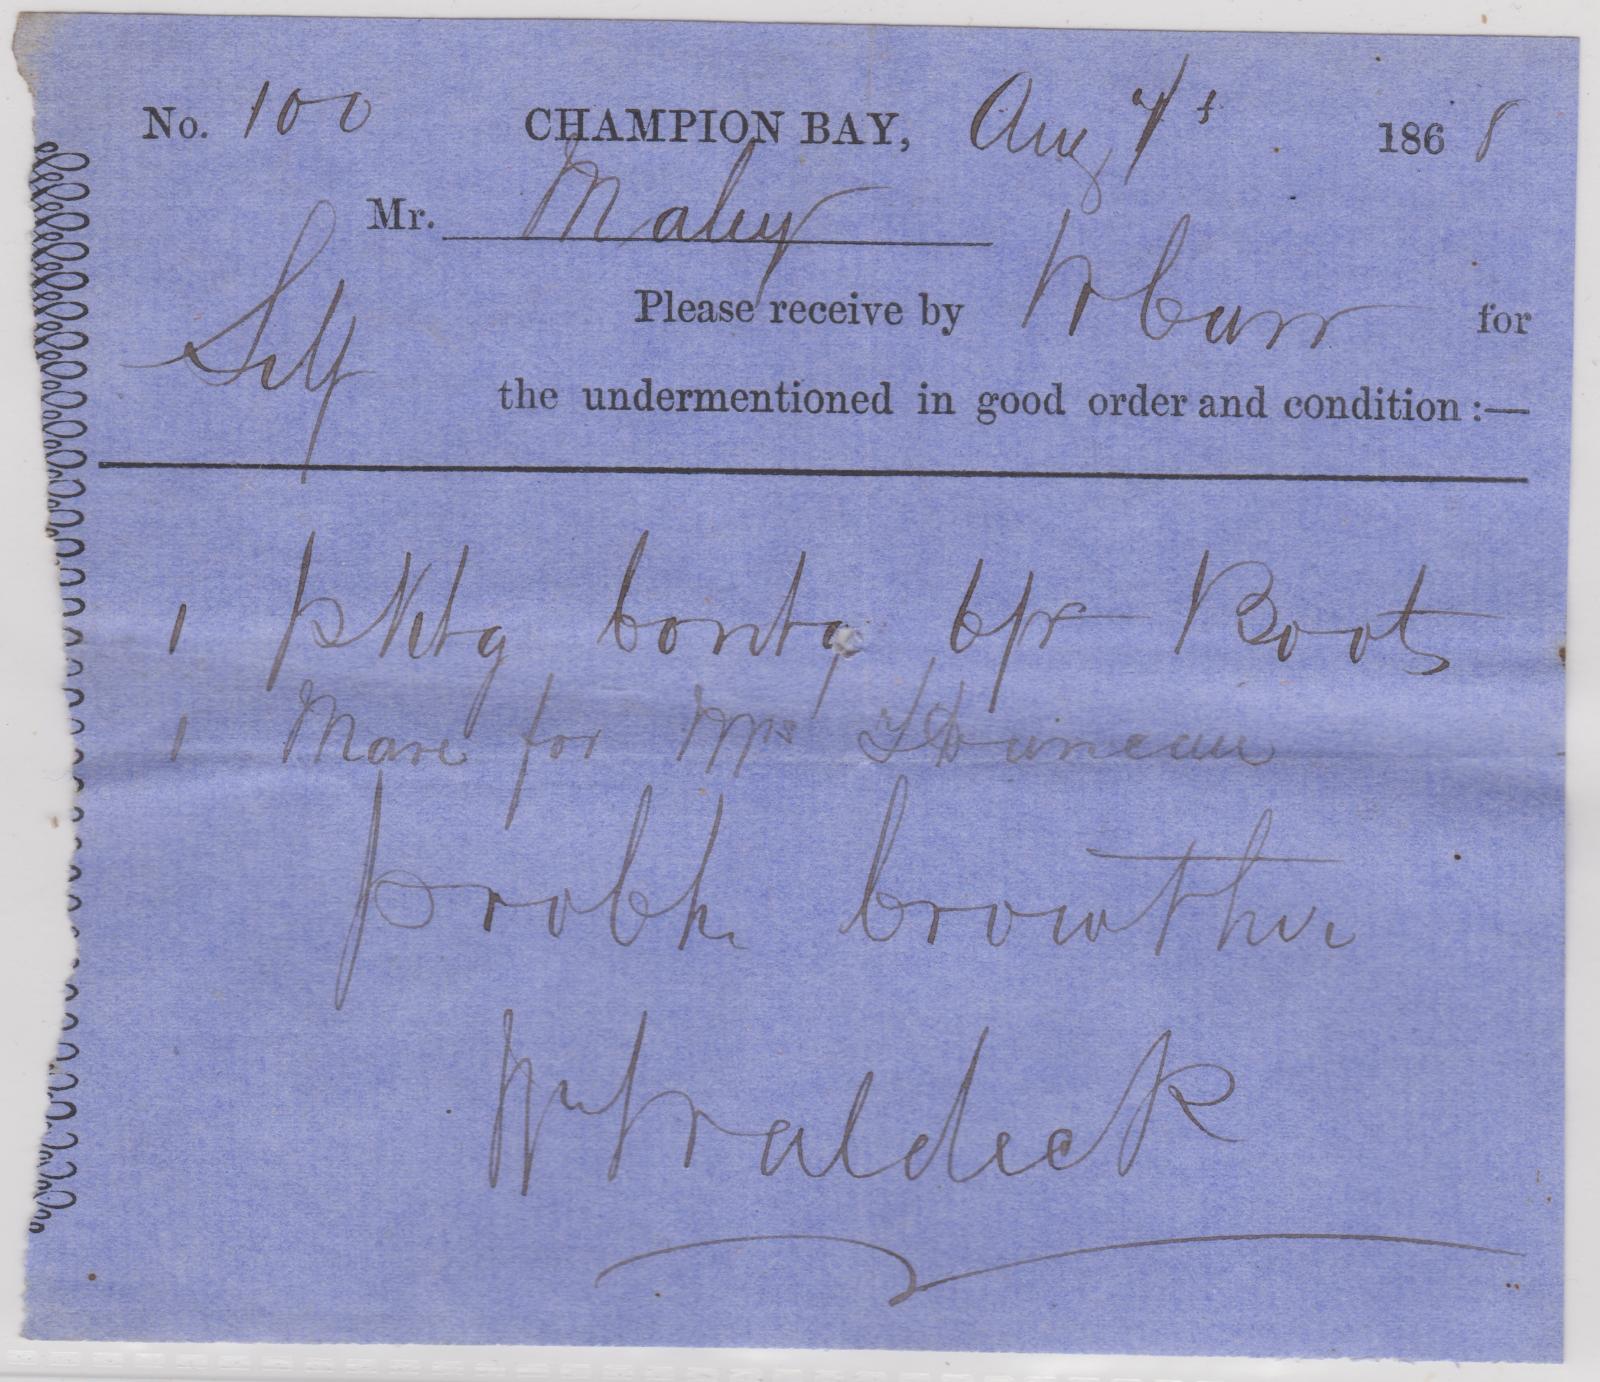 No. 100 CHAMPION BAY, Aug 7 1868
Mr. Maley
Please receive by W Carr for
Self the undermentioned in good order and condition :—
1 pktg Contg 6 pr Boots
1 Mare for Mrs Duncan
Crowther
Wm Waldeck